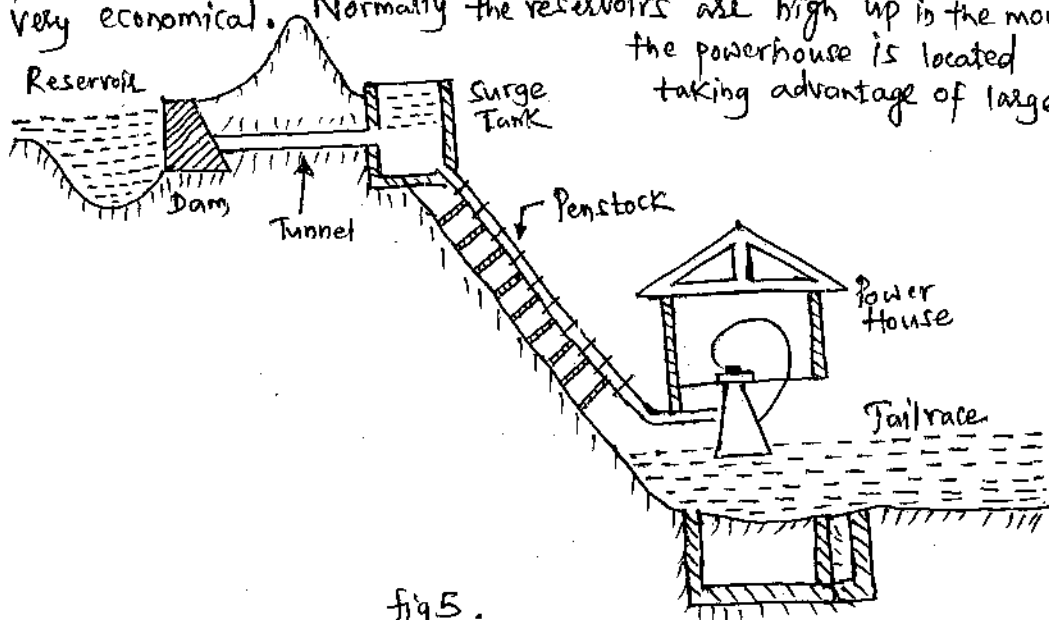 very economical. Normally the reservoirs are high up in the mou
the powerhouse is located
taking advantage of large
Reservoir
Surge
Tank
Dam
Tunnel
Penstock
Power
House
Tailrace
fig 5.